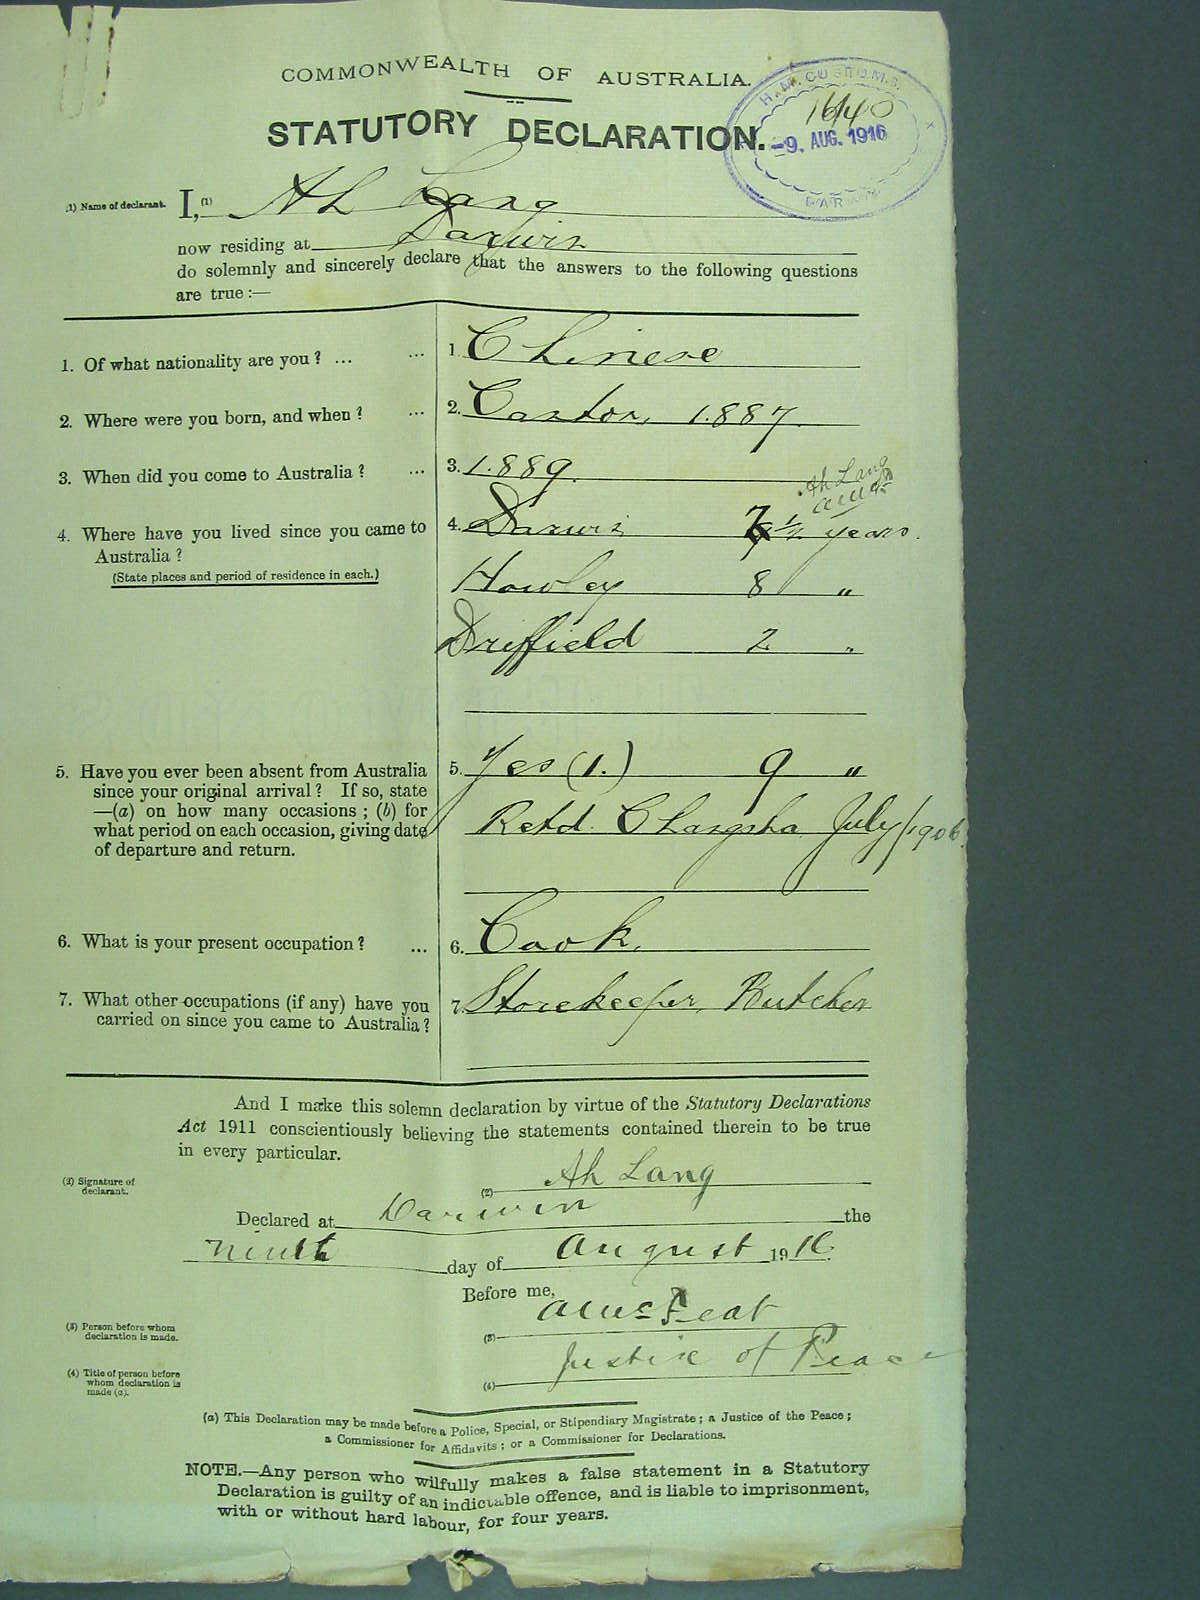 COMMONWEALTH OF AUSTRALIA.
STATUTORY DECLARATION.
H.M. CUSTOMS.
1640
-9. AUG. 1916
DARWIN
(1) Name of declarant.
I, (1) Ah Lang
now residing at Darwin
do solemnly and sincerely declare that the answers to the following questions
are true :—
1. Of what nationality are you ? ... ...
1. Chinese
2. Where were you born, and when ? ...
2. Canton, 1887.
3. When did you come to Australia ? ...
3. 1889.
Ah Lang
4. Where have you lived since you came to
Australia ?
(State places and period of residence in each.)
4. Darwin 7 1/2 years.
Howley 8 "
Driffield 2 "
5. Have you ever been absent from Australia
since your original arrival ? If so, state
—(a) on how many occasions ; (b) for
what period on each occasion, giving date
of departure and return.
5. Yes (1.) 9 "
Retd. Changsha July/1906.
6. What is your present occupation ? ...
6. Cook.
7. What other occupations (if any) have you
carried on since you came to Australia ?
7. Storekeeper, Butcher
And I make this solemn declaration by virtue of the Statutory Declarations
Act 1911 conscientiously believing the statements contained therein to be true
in every particular.
(2) Signature of
declarant.
(2) Ah Lang
Declared at Darwin the
ninth day of August 1916.
Before me,
(3) Person before whom
declaration is made.
(3)
(4) Title of person before
whom declaration is
made (a).
(4) Justice of Peace
(a) This Declaration may be made before a Police, Special, or Stipendiary Magistrate ; a Justice of the Peace ;
a Commissioner for Affidavits ; or a Commissioner for Declarations.
NOTE.—Any person who wilfully makes a false statement in a Statutory
Declaration is guilty of an indictable offence, and is liable to imprisonment,
with or without hard labour, for four years.